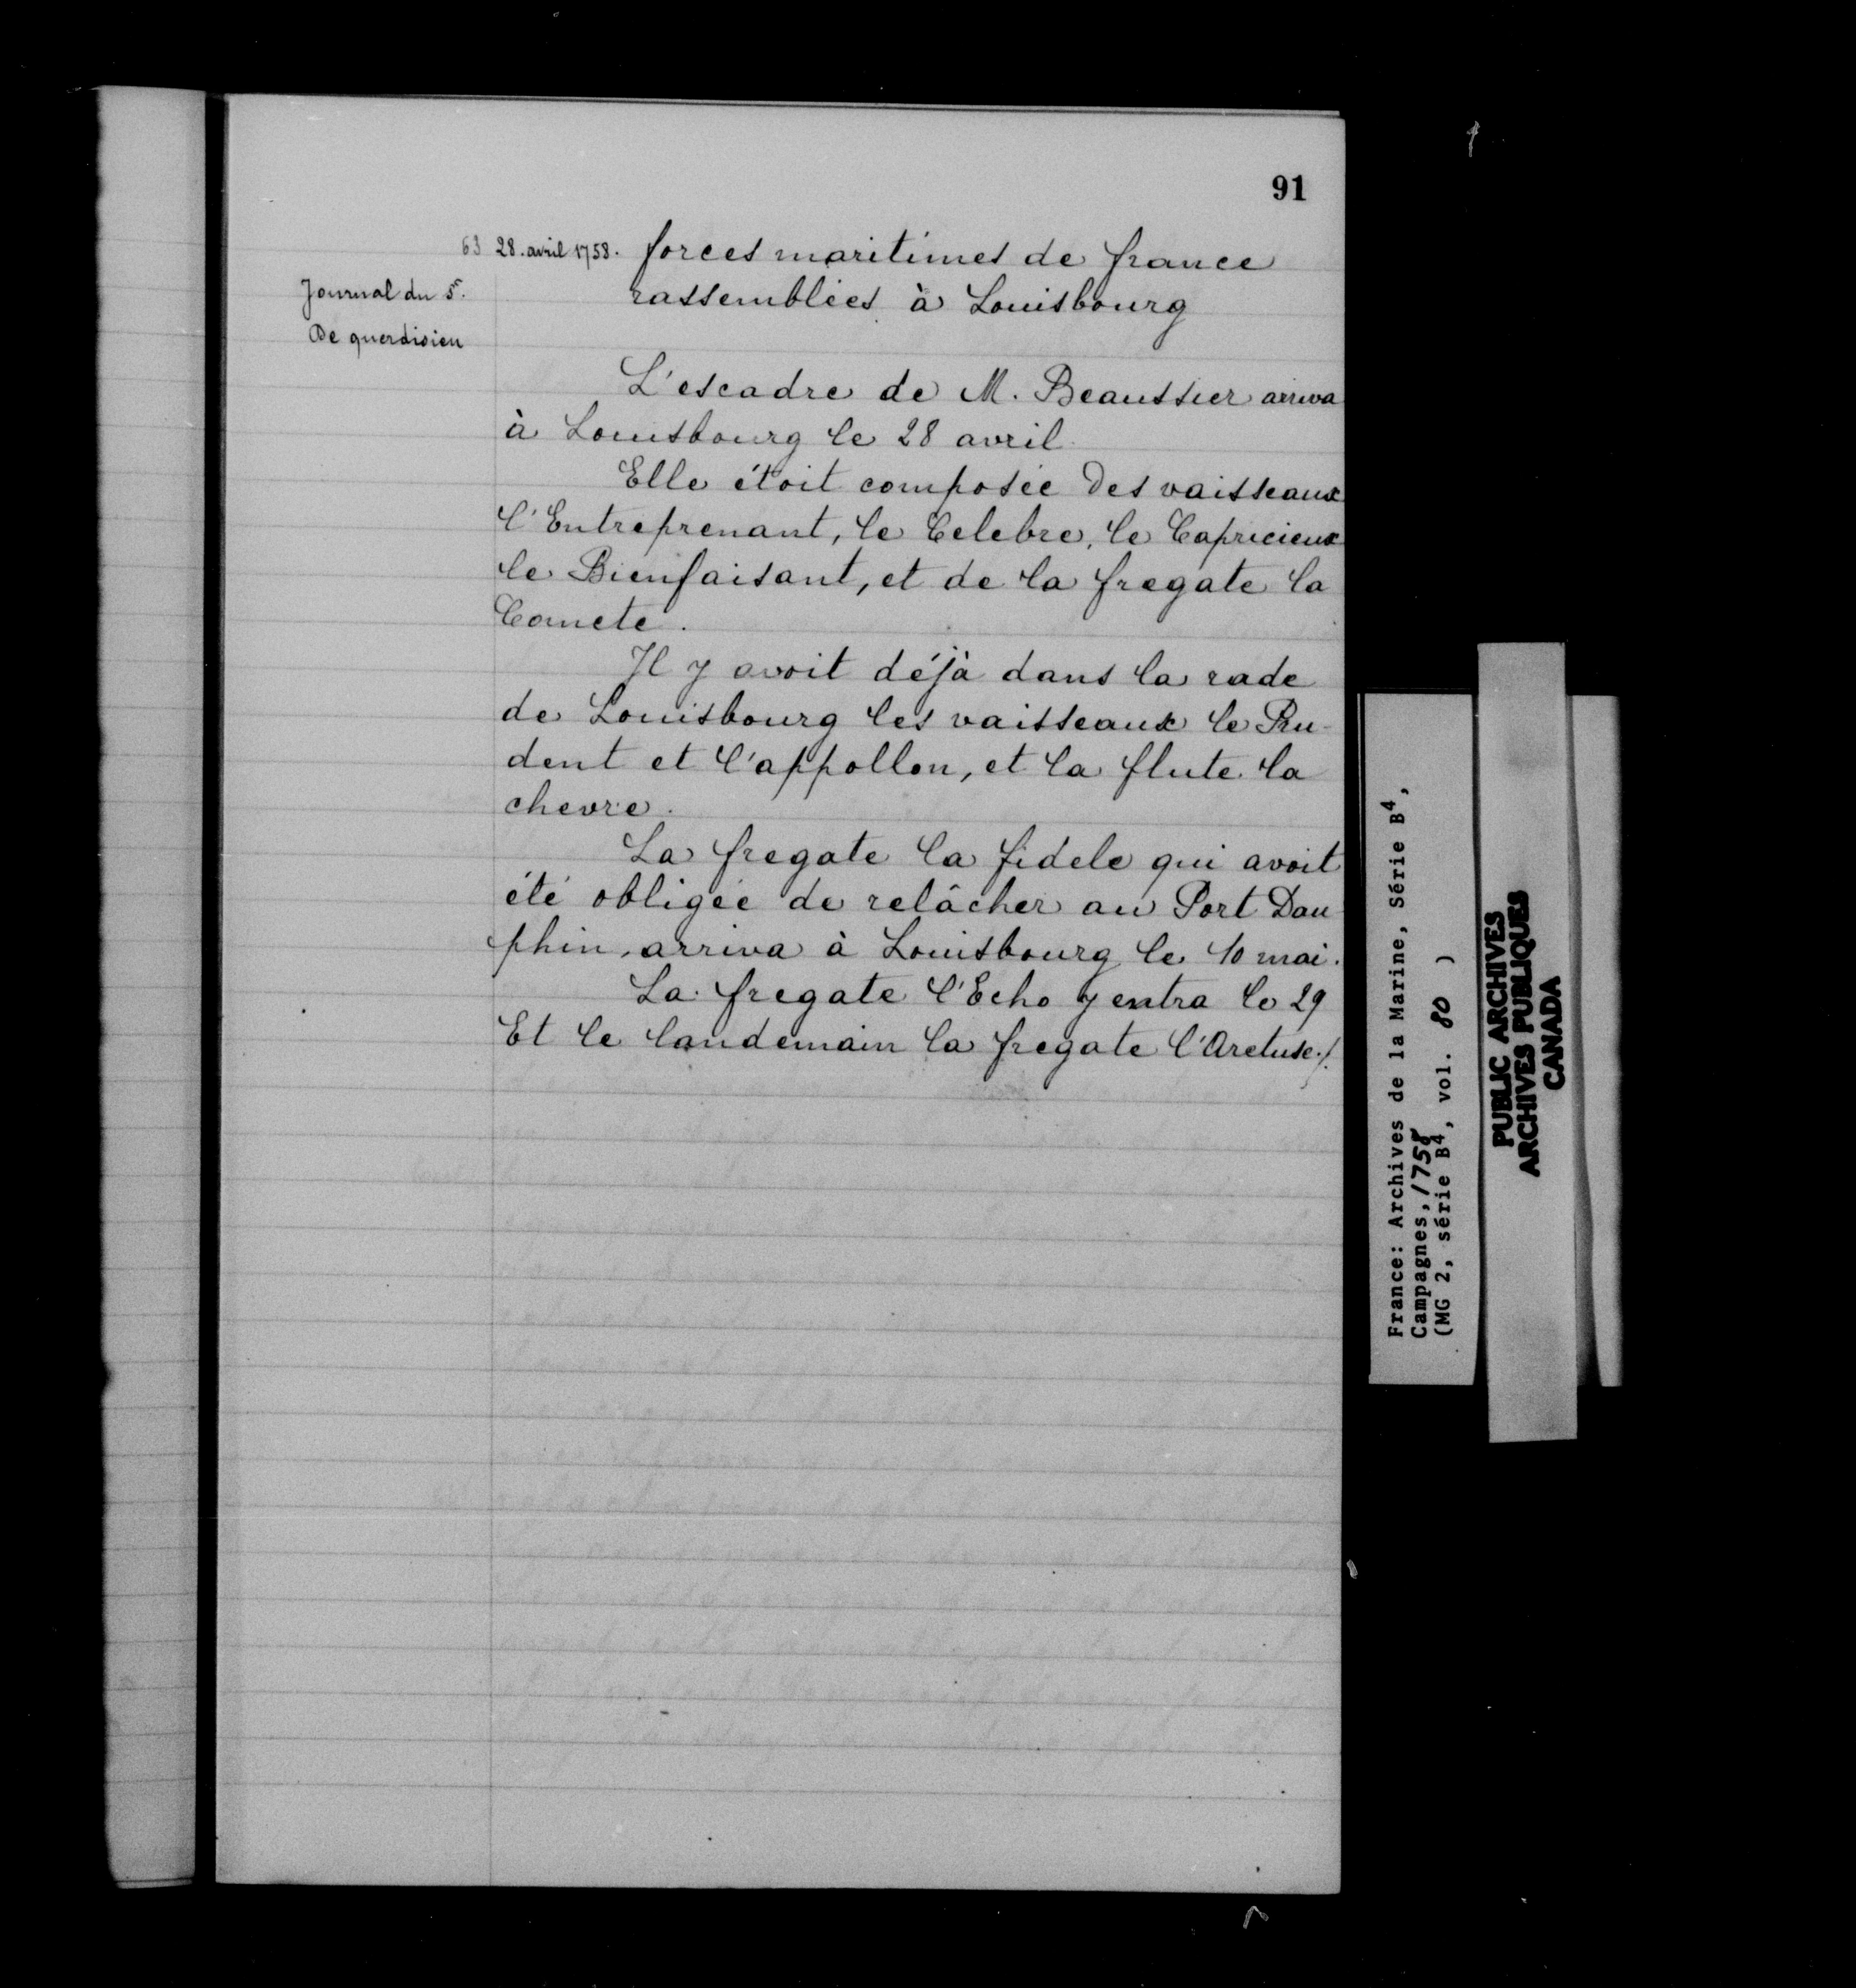 91
63 28. avril 1758. forces maritimes de france
rassemblées à Louisbourg
Journal du Sr.
De querdisien
L'escadre de M. Beaussier arriva
à Louisbourg le 28 avril.
Elle étoit composée des vaisseaux
l'Entreprenant, le Celebre, le Capricieux
le Bienfaisant, et de la fregate la
Comete.
Il y avoit déjà dans la rade
de Louisbourg les vaisseaux le Pru-
dent et l'appollon, et la flute la
chevre.
La fregate la fidele qui avoit
été obligée de relâcher au Port Dau
phin, arriva à Louisbourg le 10 mai.
La fregate l'Echo y entra le 29
Et le landemain la fregate l'Aretuse./.
France: Archives de la Marine, Série B4,
Campagnes, 1758
(MG 2, série B4, vol. 80 )
PUBLIC ARCHIVES
ARCHIVES PUBLIQUES
CANADA